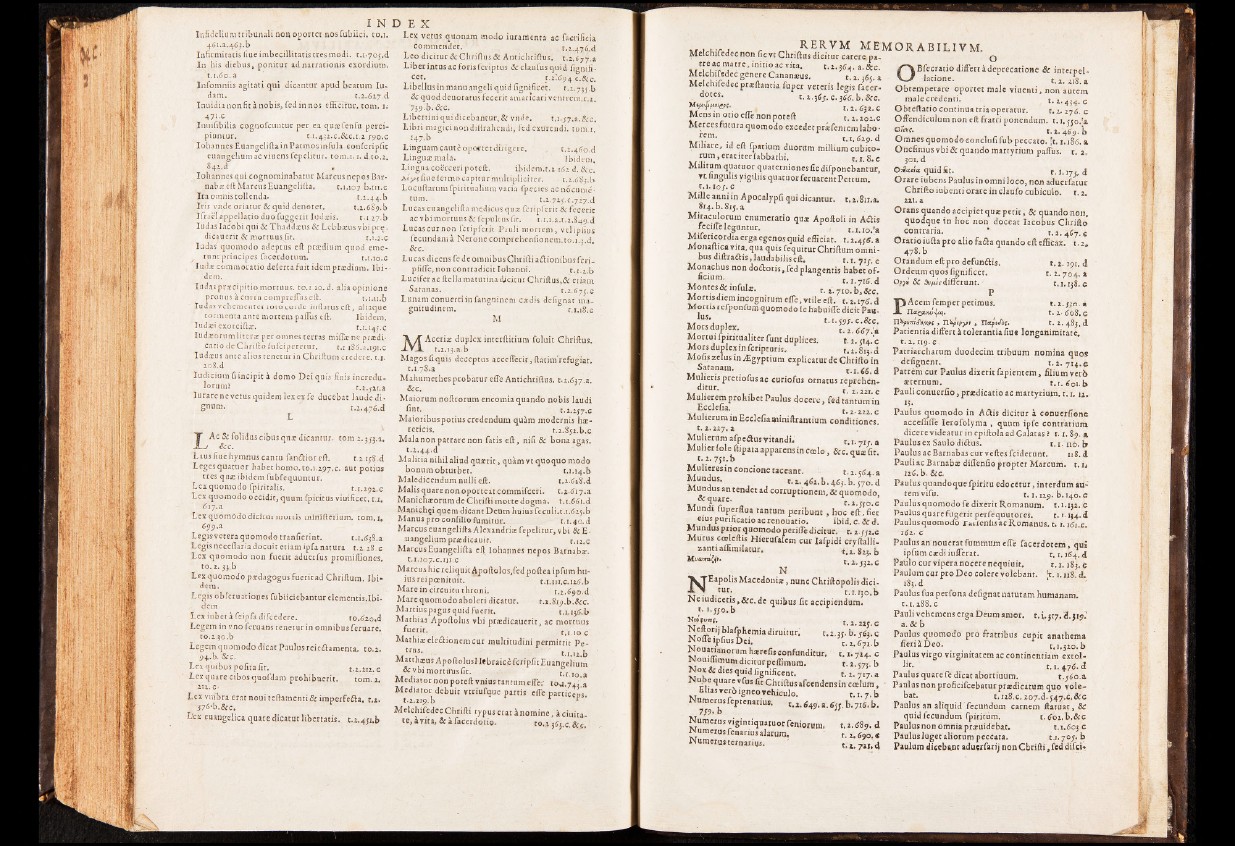 INDEX
Infidelium tribunali non oportet nos subiici. to.1.
461.a.463.b
Infirmitatis siue imbecillitatis tres modi. t.1.705.d
In his diebus, ponitur ad narrationis exordium.
t.1.60.a
Insomniis agitati qui dicantur apud beatum Iu-
dam. t.2.627.d
Inuidia non fit à nobis, sed in nos efficitur. tom. 1.
471.c
Inuisibilia cognoscuntur per ea quæ sensu perci-
piuntur.
Iohannes Euangelista in Patmos insula conscripsit
euangelium ac viuens sepelitur. tom.1.1.d to.2.
842.d
Iohannes qui cognominabatur Marcus nepos Bar-
nabæ est Marcus Euangelista. t.1.107.b.111.c
Ira omnis tollenda. t.2.44.b
Iris vnde oriatur & quid denotet. t.2.689.b
Israël appellatio duo suggerit Iudæis. t.1.27.b
Iudas Iacobi qui & Thaddæus & Lebbæus vbi præ-
dicauerit & mortuus sit. t.1.2.c
Iudas quomodo adeptus est prædium quod eme-
runt principes sacerdotum. t.1.10.c
Iudæ commoratio deserta fuit idem prædium. Ibi-
dem.
Iudas præcipitio mortuus. to.1 10.d. alia opinione
protritus à curru compressus est. t.1.11.b
Iudas vehementer toto corpore inflatus est, aliaque
tormenta ante mortem passus est. Ibidem.
Iudæi exorcistæ. t.1.145.c
Iudæorum literæ per omnes terras missæ ne prædi-
catio de Christo susciperetur. t.1 186.a.191.c
Iudæus ante alios tenetur in Christum credere. t.1.
208.d
Iudicium si incipit à domo Dei quis finis incredu-
lorum? t.2.521.a
Iurare ne vetus quidem lex ex se ducebat laude di-
gnum. t.2.476.d
L
LAc & solidus cibus quæ dicantur. tom 2.353.a.
&c.
Laus siue hymnus cantu sanctior est. t.2 158.d
Leges quatuor habet homo. to.1 297.c. aut potius
tres quæ ibidem subsequuntur.
Lex quomodo spiritalis. t.1.292.c
Lex quomodo occidit, quum spiritus viuificet. t.1.
617.a
Lex quomodo dicitur mortis ministerium. tom. 1.
699.a
Legis vetera quomodo transierint. t.1.638.a
Legis necessaria docuit etiam ipsa natura t.2.28 c
Lex quomodo non fuerit aduersus promissiones.
to.2.33.b
Lex quomodo pædagogus fuerit ad Christum. Ibi-
dem.
Legis obseruationes subiiciebantur elementis. Ibi-
dem
Lex iubet à seipsa discedere. to.620.d
Legem in vno seruans tenetur in omnibus seruare.
to.230.b
Legem quomodo dicat Paulus reiectamenta. to.2.
94.b. &c.
Lex quibus posita sit. t.2.212.c
Lex quare cibos quosdam prohibuerit. tom. 2.
212.c.
Lex vmbra erat noui testamenti & imperfecta. t.2.
376.b.&c.
Lex euangelica quare dicatur libertatis. t.2.451.b
Lex vetus quonam modo iuramenta ac sacrificia
commendet. t.2.476.d
Leo dicitur & Christus & Antichristus. t.2.677.a
Liber intus ac foris scriptus & clausus quid signifi-
cet. t.2.694 c.&c.
Libellus in manu angeli quid significet. t.2.735.b
& quod deuoratus fecerit amaricari ventrem. t.2.
739.b. &c.
Libertini qui dicebantur, & vnde. t.1.57.a.&c.
Libri magici non distrahendi, sed exurendi. tom.1.
147.b
Linguam cautè oportet dirigere. t.2.460.d
Linguæ mala. Ibidem.
Lingua coërceri potest. ibidem. t.2 162 d. &c.
siue sermo capitur multipliciter. t.2.683.b
Locustarum spiritualium varia species ac nocumé-
tum. t.2.725.c.727.d
Lucas euangelista medicus quæ scripserit & fecerit
ac vbi mortuus & sepultus sit. t.1.1.a.t.2.849.d
Lucas cur non scripserit Pauli mortem, vel ipsius
secundam à Nerone comprehensionem. to.1.3.d.
&c.
Lucas dicens se de omnibus Christi actionibus scri-
psisse, non contradicit Iohanni. t.1.2.b
Lucifer ac stella matutina dicitur Christus, & etiam
Satanas. t.2.675.c
Lunam conuerti in sanguinem cædis designat ma-
gnitudinem. t.1.18.c
M
MAceriæ duplex interstitium soluit Christus.
t.2.13.a.b
Magos si quis deceptus accesserit, statim refugiat.
t.1 78.a
Mahumethes probatur esse Antichristus. t.2.637.a.
&c.
Maiorum nostrorum encomia quando nobis laudi
sint. t.2.257.c
Maioribus potius credendum quàm modernis hæ-
reticis. t.2.852.b.c
Mala non patrare non satis est, nisi & bona agas.
t.2.44.d
Malitia nihil aliud quærit, quàm vt quoquo modo
bonum obtur bet. t.1.14.b
Maledicendum nulli est. t.2.618.d
Malis quare non oporteat commisceri. t.2.617.a
Manichæorum de Christi morte dogma. t.1.661.d
Manichei quem dicant Deum huius seculi. t.1.625.b
Manus pro consilio sumitur. t.1.40.d
Marcus euangelista Alexandriæ sepelitur, vbi & E-
uangelium prædicauit. t.12.c
Marcus Euangelista est Iohannes nepos Barnabæ.
t.1.107.c.111 c
Marcus hic reliquit Apostolos, sed postea ipsum hu-
ius rei pœnituit. t.1.111.c.126.b
Mare in circuitu throni. t.2.690.d
Mare quomodo aboleri dicatur. t.2.819.b.&c.
Martius pagus quid fuerit. t.1.136.b
Mathias Apostolus vbi prædicauerit, ac mortuus
fuerit. t.1 10 c
Mathiæ electionem cur multitudini permittit Pe-
trus. t.1.12.b
Matthæus Apostolus Hebraicè scripsit Euangelium
& vbi mortuus sit. t.1.10.a
Mediator non potest vnius tantum esse. to.2.743.a
Mediator debuit vtriusque partis esse particeps.
t.2.219.b
Melchisedec Christi typus erat à nomine, à ciuita-
te, à vita, & à sacerdotio. to.2 363.c.&c.
RERVM MEMORABILIVM.
Melchisedec non sic vt Christus dicitur carere pa-
tre ac matre, initio ac vita. t.2.364. a.&c.
Melchisedec genere Cananæus. t.2.365.a
Melchisedec præstantia super veteris legis sacer-
dotes. t.2.365.c.366.b.&c.
t.2.632.c
Mens in otio esse non potest t.2.102.c
Merces futura quomodo excedet præsentem labo-
rem. t.1.629.d
Miliare, id est spatium duorum millium cubito-
rum, erat iter sabbathi. t.1.8.c
Militum quatuor quaterniones sic disponebantur,
vt singulis vigiliis quatuor seruarent Petrum.
t.1.105.c
Mille anni in Apocalypsi qui dicantur. t.2.811.a.
814.b.815.a
Miraculorum enumeratio quæ Apostoli in Actis
fecisse leguntur. t.1.10.a
Misericordia erga egenos quid efficiat. t.2.456.a
Monastica vita, qua quis sequitur Christum omni-
bus distractis, laudabilis est. t.1.715.c
Monachus non doctoris, sed plangentis habet of-
ficium. t.1.716.d
Montes & insulæ. t.2.710.b.&c.
Mortis diem incognitum esse, vtile est. t.2.176.d
Mortis responsum quomodo se habuisse dicit Pau-
lus. t.1.595.c.&c.
Mors duplex. t.2.667.a
Mortui spiritualiter sunt duplices. t.2.514.c
Mors duplex in scripturis. t.2.815.d
Mosis zelus in Ægyptium explicatur de Christo in
Satanam. t.1.66.d
Mulieris pretiosus ac curiosus ornatus reprehen-
ditur. t.2.221.c
Mulierem prohibet Paulus docere, sed tantum in
Ecclesia. t.2.222.c
Mulierum in Ecclesia ministrantium conditiones.
t.2.227.a
Mulierum aspectus vitandi. t.1.715.a
Mulier sole stipata apparens in cœlo, &c. quæ sit.
t.2.751.b
Mulieres in concione taceant. t.2.564.a
Mundus. t.2.462.b.463.b.570.d
Mundus an tendet ad corruptionem, & quomodo,
& quare. t.2.550.c
Mundi superflua tantum peribunt, hoc est, fiet
eius purificatio ac renouatio. ibid.c.& d.
Mundus prior quomodo periisse dicitur. t.2.552.c
Murus cœlestis Hierusalem cur Iaspidi crystalli-
zanti assimilatur. t.2.825.b
t.2.532.c
N
NEapolis Macedoniæ, nunc Christopolis dici-
tur. t.1.130.b
Ne iudicetis, &c. de quibus sit accipiendum.
t.1.550.b
t.2.225.c
Nestorij blasphemia diruitur. t.2.35.b.563.c
Nosse ipsius Dei. t.2.671.b
Nouatianorum hæresis confunditur. t.1.724.c
Nouissimum dicitur pessimum. t.2.573.b
Nox & dies quid significent. t.1.717.a
Nube quare vsus sit Christus ascendens in cœlum,
Elias verò igneo vehiculo. t.1.7.b
Numerus septenarius. t.2.649.a.655.b.716.b.
759.b
Numerus vigintiquatuor seniorum. t.2.689.d
Numerus senarius alatum. t.2.690.c
Numerus ternarius. t.2.721.d
O
OBsecratio differt à deprecatione & interpel-
latione. t.2.218.a
Obtemperare oportet male viuenti, non autem
male credenti. t.2.434.c
Obtestatio continua tria operatur. t.2.276.c
Offendiculum non est fratri ponendum. t.1.550.a
t.2.469.b
Omnes quomodo conclusi sub peccato. t.1.186.a
Onesimus vbi & quando martyrium passus. t.2.
301.d
quid sit. t.1.173.d
Orare iubens Paulus in omni loco, non aduersatur
Christo iubenti orare in clauso cubiculo. t.2.
221.a
Orans quando accipiet quæ petit, & quando non,
quodque in hoc non doceat Iacobus Christo
contraria. t.2.467.c
Oratio iusta pro alio facta quando est efficax. t.2.
478.b
Orandum est pro defunctis. t.2.191.d
Ordeum quos significet. t.2.704.a
& differunt. t.1.158.c
P
PAcem semper petimus. t.2.520.a
t.2.608.c
t.2.485.d
Patientia differt à tolerantia siue longanimitate.
t.2.119.c
Patriarcharum duodecim tribuum nomina quos
designent. t.2.714.c
Patrem cur Paulus dixerit sapientem, filium verò
æternum. t.1.601.b
Pauli conuersio, prædicatio ac martyrium. t.1.12.
15.
Paulus quomodo in Actis dicitur à conuersione
accessisse Ierosolyma, quum ipse contrarium
dicere videatur in epistola ad Galatas? t.1.89.a
Paulus ex Saulo dictus. t.1.110.b
Paulus ac Barnabas cur vestes sciderunt. 118.d
Pauli ac Barnabæ dissensio propter Marcum. t.1.
126.b.&c.
Paulus quandoque spiritu edocetur, interdum au-
tem visu. t.1.129.b.140.c
Paulus quomodo se dixerit Romanum. t.1.132.c
Paulus quare fugerit persequutores. t.1.134.d
Paulus quomodo Tarsensis ac Romanus. t.1.161.c.
162.c
Paulus an nouerat summum esse sacerdotem, qui
ipsum cædi iusserat. t.1.164.d
Paulo cur vipera nocere nequiuit. t.1.183.c
Paulum cur pro Deo colere volebant. t.1.118.d.
183.d
Paulus sua persona designat naturam humanam.
t.1.288.c
Pauli vehemens erga Deum amor. t.1.317.d.319.
a.& b
Paulus quomodo pro fratribus cupit anathema
fieri à Deo. t.1.320.b
Paulus virgo virginitatem ac continentiam extol-
lit. t.1.476.d
Paulus quare se dicat abortiuum. t.560.a
Paulus non proficiscebatur prædicatum quo vole-
bat. t.128.c.207.d.547.c.&c
Paulus an aliquid secundum carnem statuat, &
quid secundum spiritum. t.602.b.&c
Paulus non omnia præuidebat. t.1.603 c
Paulus luget aliorum peccata. t.1.705.b
Paulum dicebant aduersarij non Christi, sed disci-